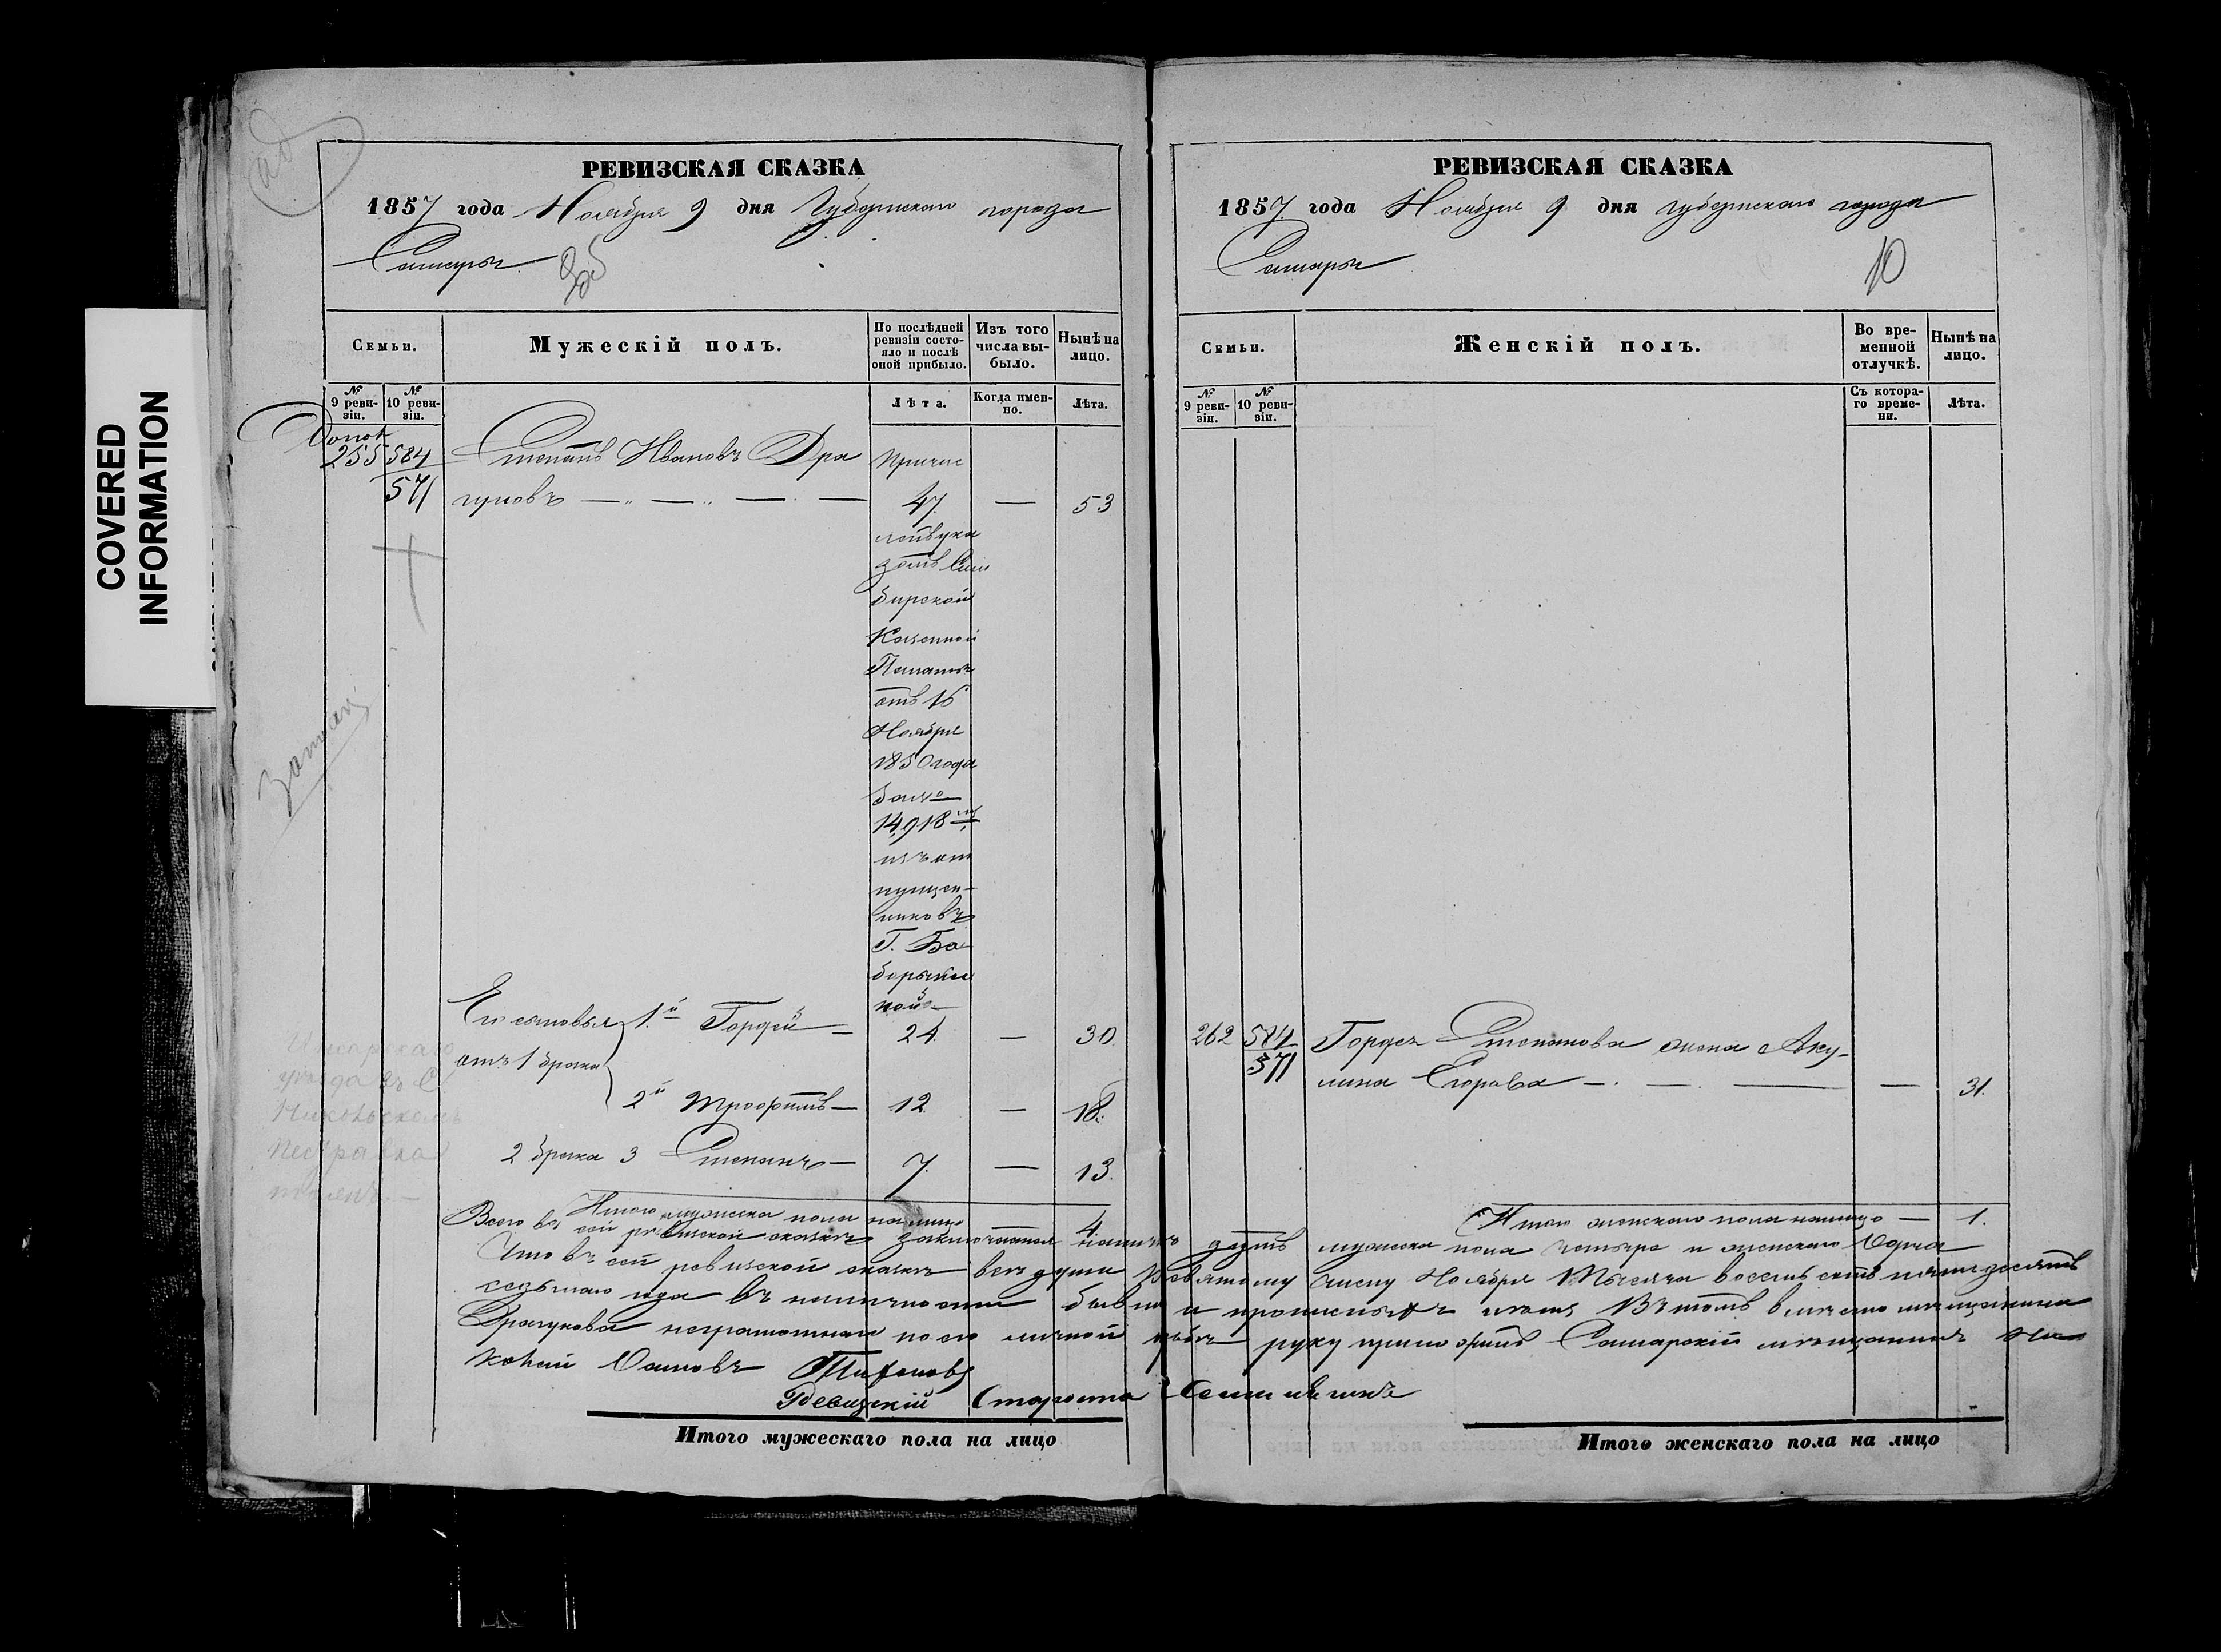 COVERED
INFORMATION
РЕВИЗСКАЯ СКАЗКА
1857 года Ноября 9 дня Губернскаго города
Самары
Семьи.
Мужескій полъ.
По послѣдней ревизіи состояло и послѣ оной прибыло.
Изъ того числа выбыло.
Нынѣ на лицо.
№ 9 ревизіи.
№ 10 ревизіи.
Лѣта.
Когда именно.
Лѣта.
Допол
255 584
571
Степанъ Ивановъ Дра
гуновъ — „ — „ — — 47. — 53
Причис
бирской
Казенной
Палаты
отъ 16
Ноября
1850 года
за №
14,918
изъ от
пущен-
никовъ
Г. Бо
борыки
ной
Его сыновья 1й Гордей — 24. — 30
отъ 1 брака
2й Трофимъ — 12. — 18.
2 брака 3 Степанъ — 7. — 13.
Итого мужеска пола на лицо — 4
РЕВИЗСКАЯ СКАЗКА
1857 года Ноября 9 дня губернскаго города
Самары
10
Семьи.
Женскій полъ.
Во временной отлучкѣ.
Нынѣ на лицо.
№ 9 ревизіи.
№ 10 ревизіи.
Съ котораго времени.
Лѣта.
262 584
571
Гордея Степанова жена Аку-
лина Егорова — — — — 31.
Итого женскаго пола налицо — 1.
Всего въ сей ревизской сказкѣ заключается наличныхъ душъ мужеска пола четыре и женскаго одна
Что въ сей ревизской сказкѣ всѣ души къ девятому числу Ноября Мѣсяца восемьсотъ пятьдесятъ
седьмаго года въ наличности бывшія и прописныхъ нѣтъ Въ томъ вмѣсто мѣщанина
Драгунова неграмотнаго по его личной прозьбѣ руку приложилъ Самарскій мѣщанинъ
Тихоновъ
Ревизскій Староста
Итого мужескаго пола на лицо
Итого женскаго пола на лицо